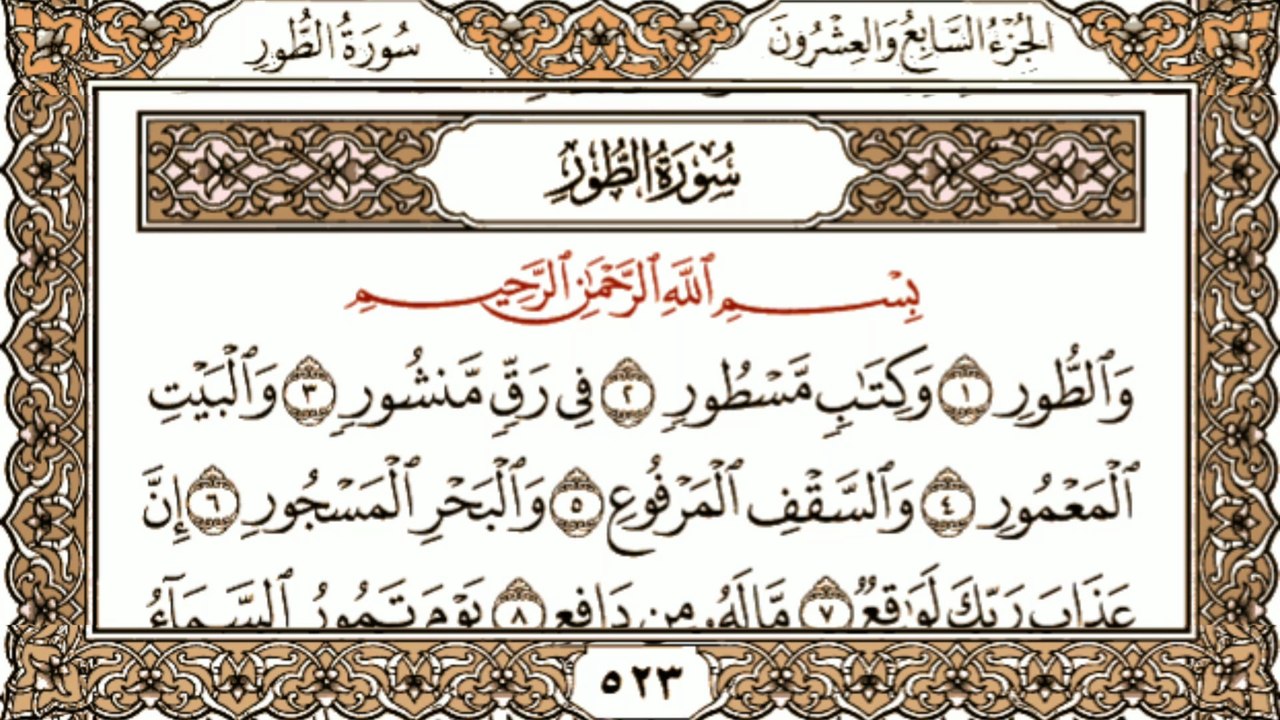 الجُزْءُ السَّابِعُ وَالعِشْرُونَ
سُورَةُ الطُّورِ
سُورَةُ الطُّورِ
بِسْمِ ٱللَّهِ ٱلرَّحْمَٰنِ ٱلرَّحِيمِ
وَٱلطُّورِ ١ وَكِتَٰبٖ مَّسْطُورٖ ٢ فِي رَقّٖ مَّنشُورٖ ٣ وَٱلْبَيْتِ
ٱلْمَعْمُورِ ٤ وَٱلسَّقْفِ ٱلْمَرْفُوعِ ٥ وَٱلْبَحْرِ ٱلْمَسْجُورِ ٦ إِنَّ
عَذَابَ رَبِّكَ لَوَٰقِعٞ ٧ مَّا لَهُۥ مِن دَافِعٖ ٨ يَوْمَ تَمُورُ ٱلسَّمَآءُ
٥٢٣